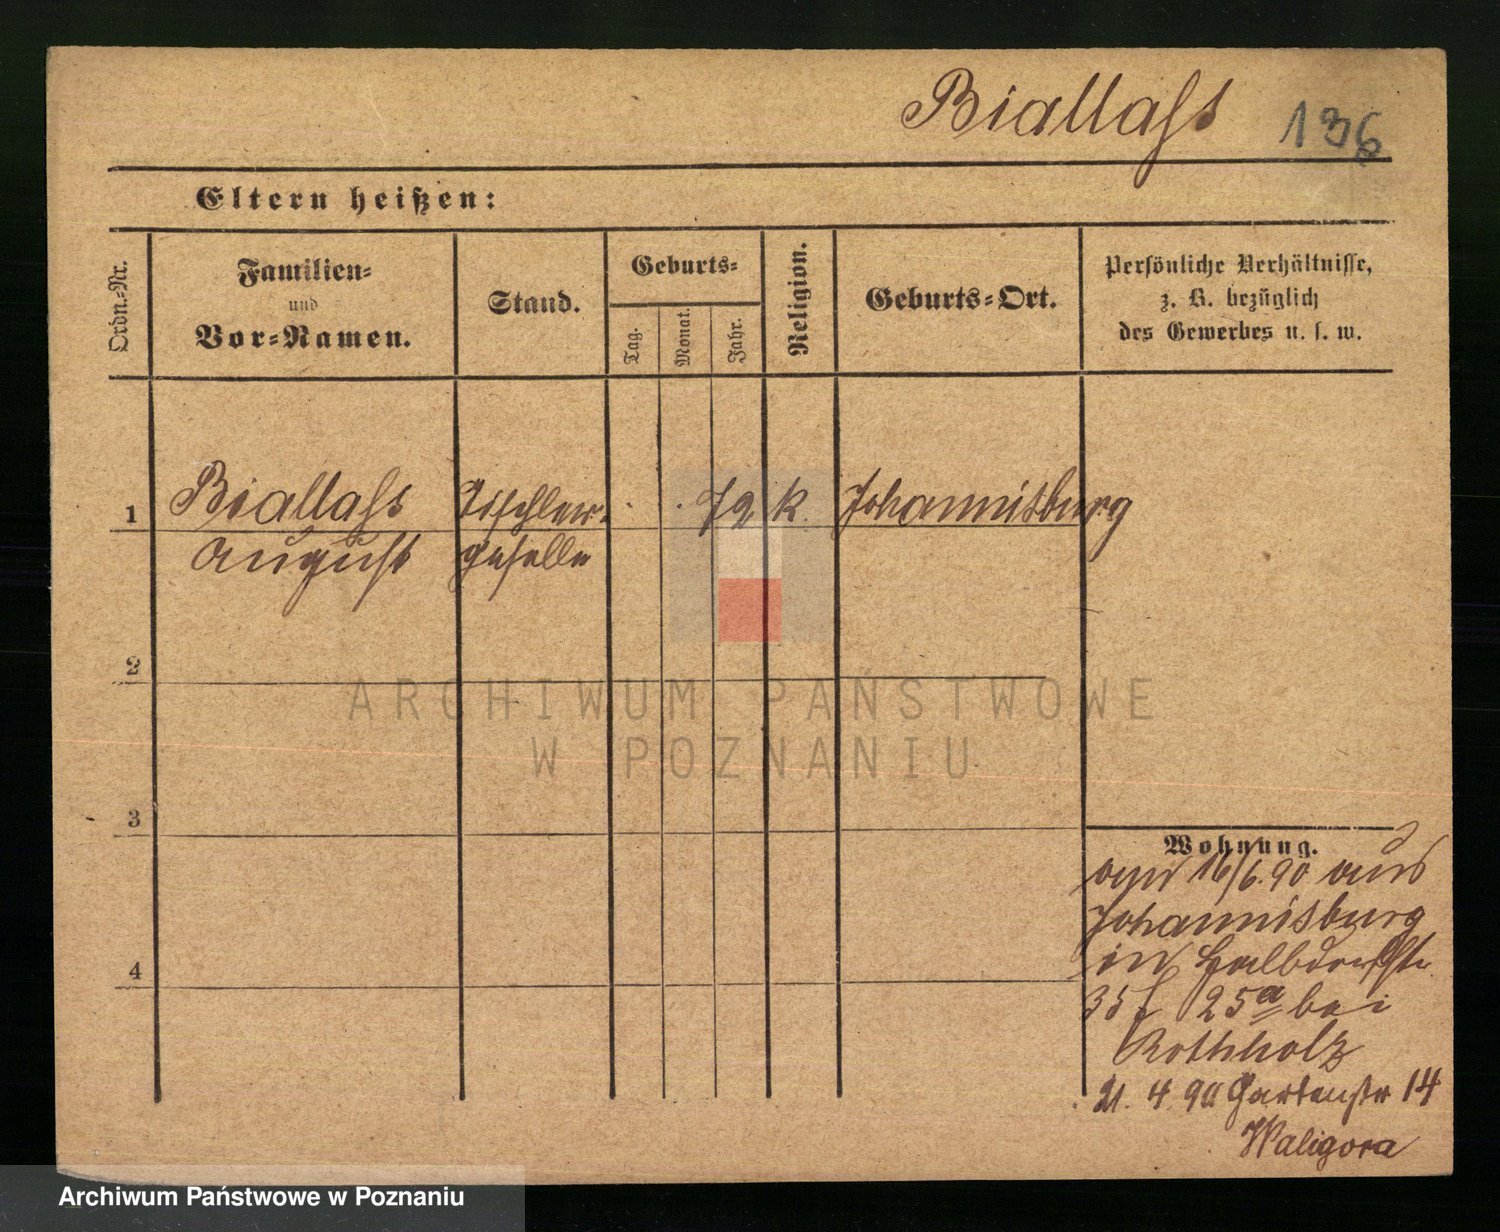 Biallaß 136
Eltern heißen:
Ordn.=Nr.
Familien=
und
Vor=Namen.
Stand.
Geburts=
Tag.
Monat.
Jahr.
Religion.
Geburts=Ort.
Persönliche Verhältnisse,
z. B. bezüglich
des Gewerbes u. s. w.
1 Biallaß Tischler= 72 k. Johannisburg
August geselle
2
ARCHIWUM PAŃSTWOWE
W POZNANIU
3
4
Wohnung.
16/6.90 aus
Johannisburg
in Halbdorfstr
25a bei
Rothholz
21. 4. 90 Gartenstr 14
Waligora
Archiwum Państwowe w Poznaniu